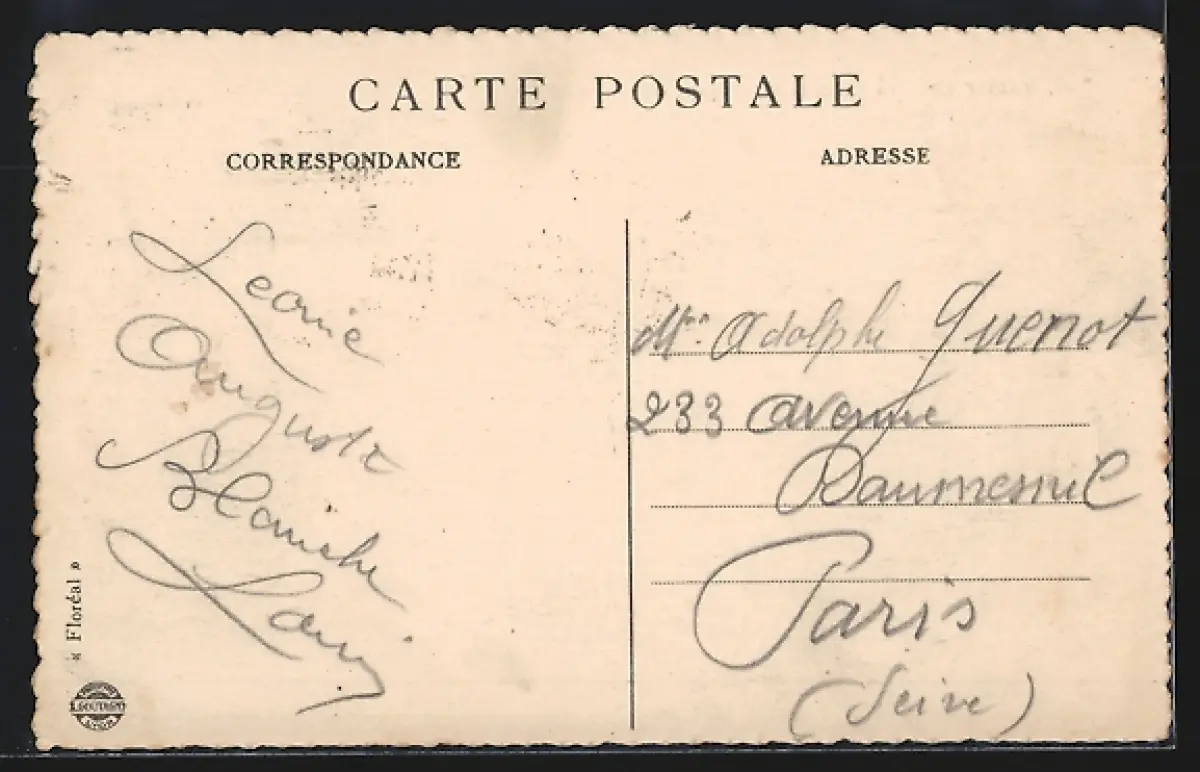 CARTE POSTALE
CORRESPONDANCE
ADRESSE
Leonie
Auguste
Blanche
Louis
Mr. Adolphe Guenot
233 avenue
Daumesnil
Paris
(Seine)
« Floréal »